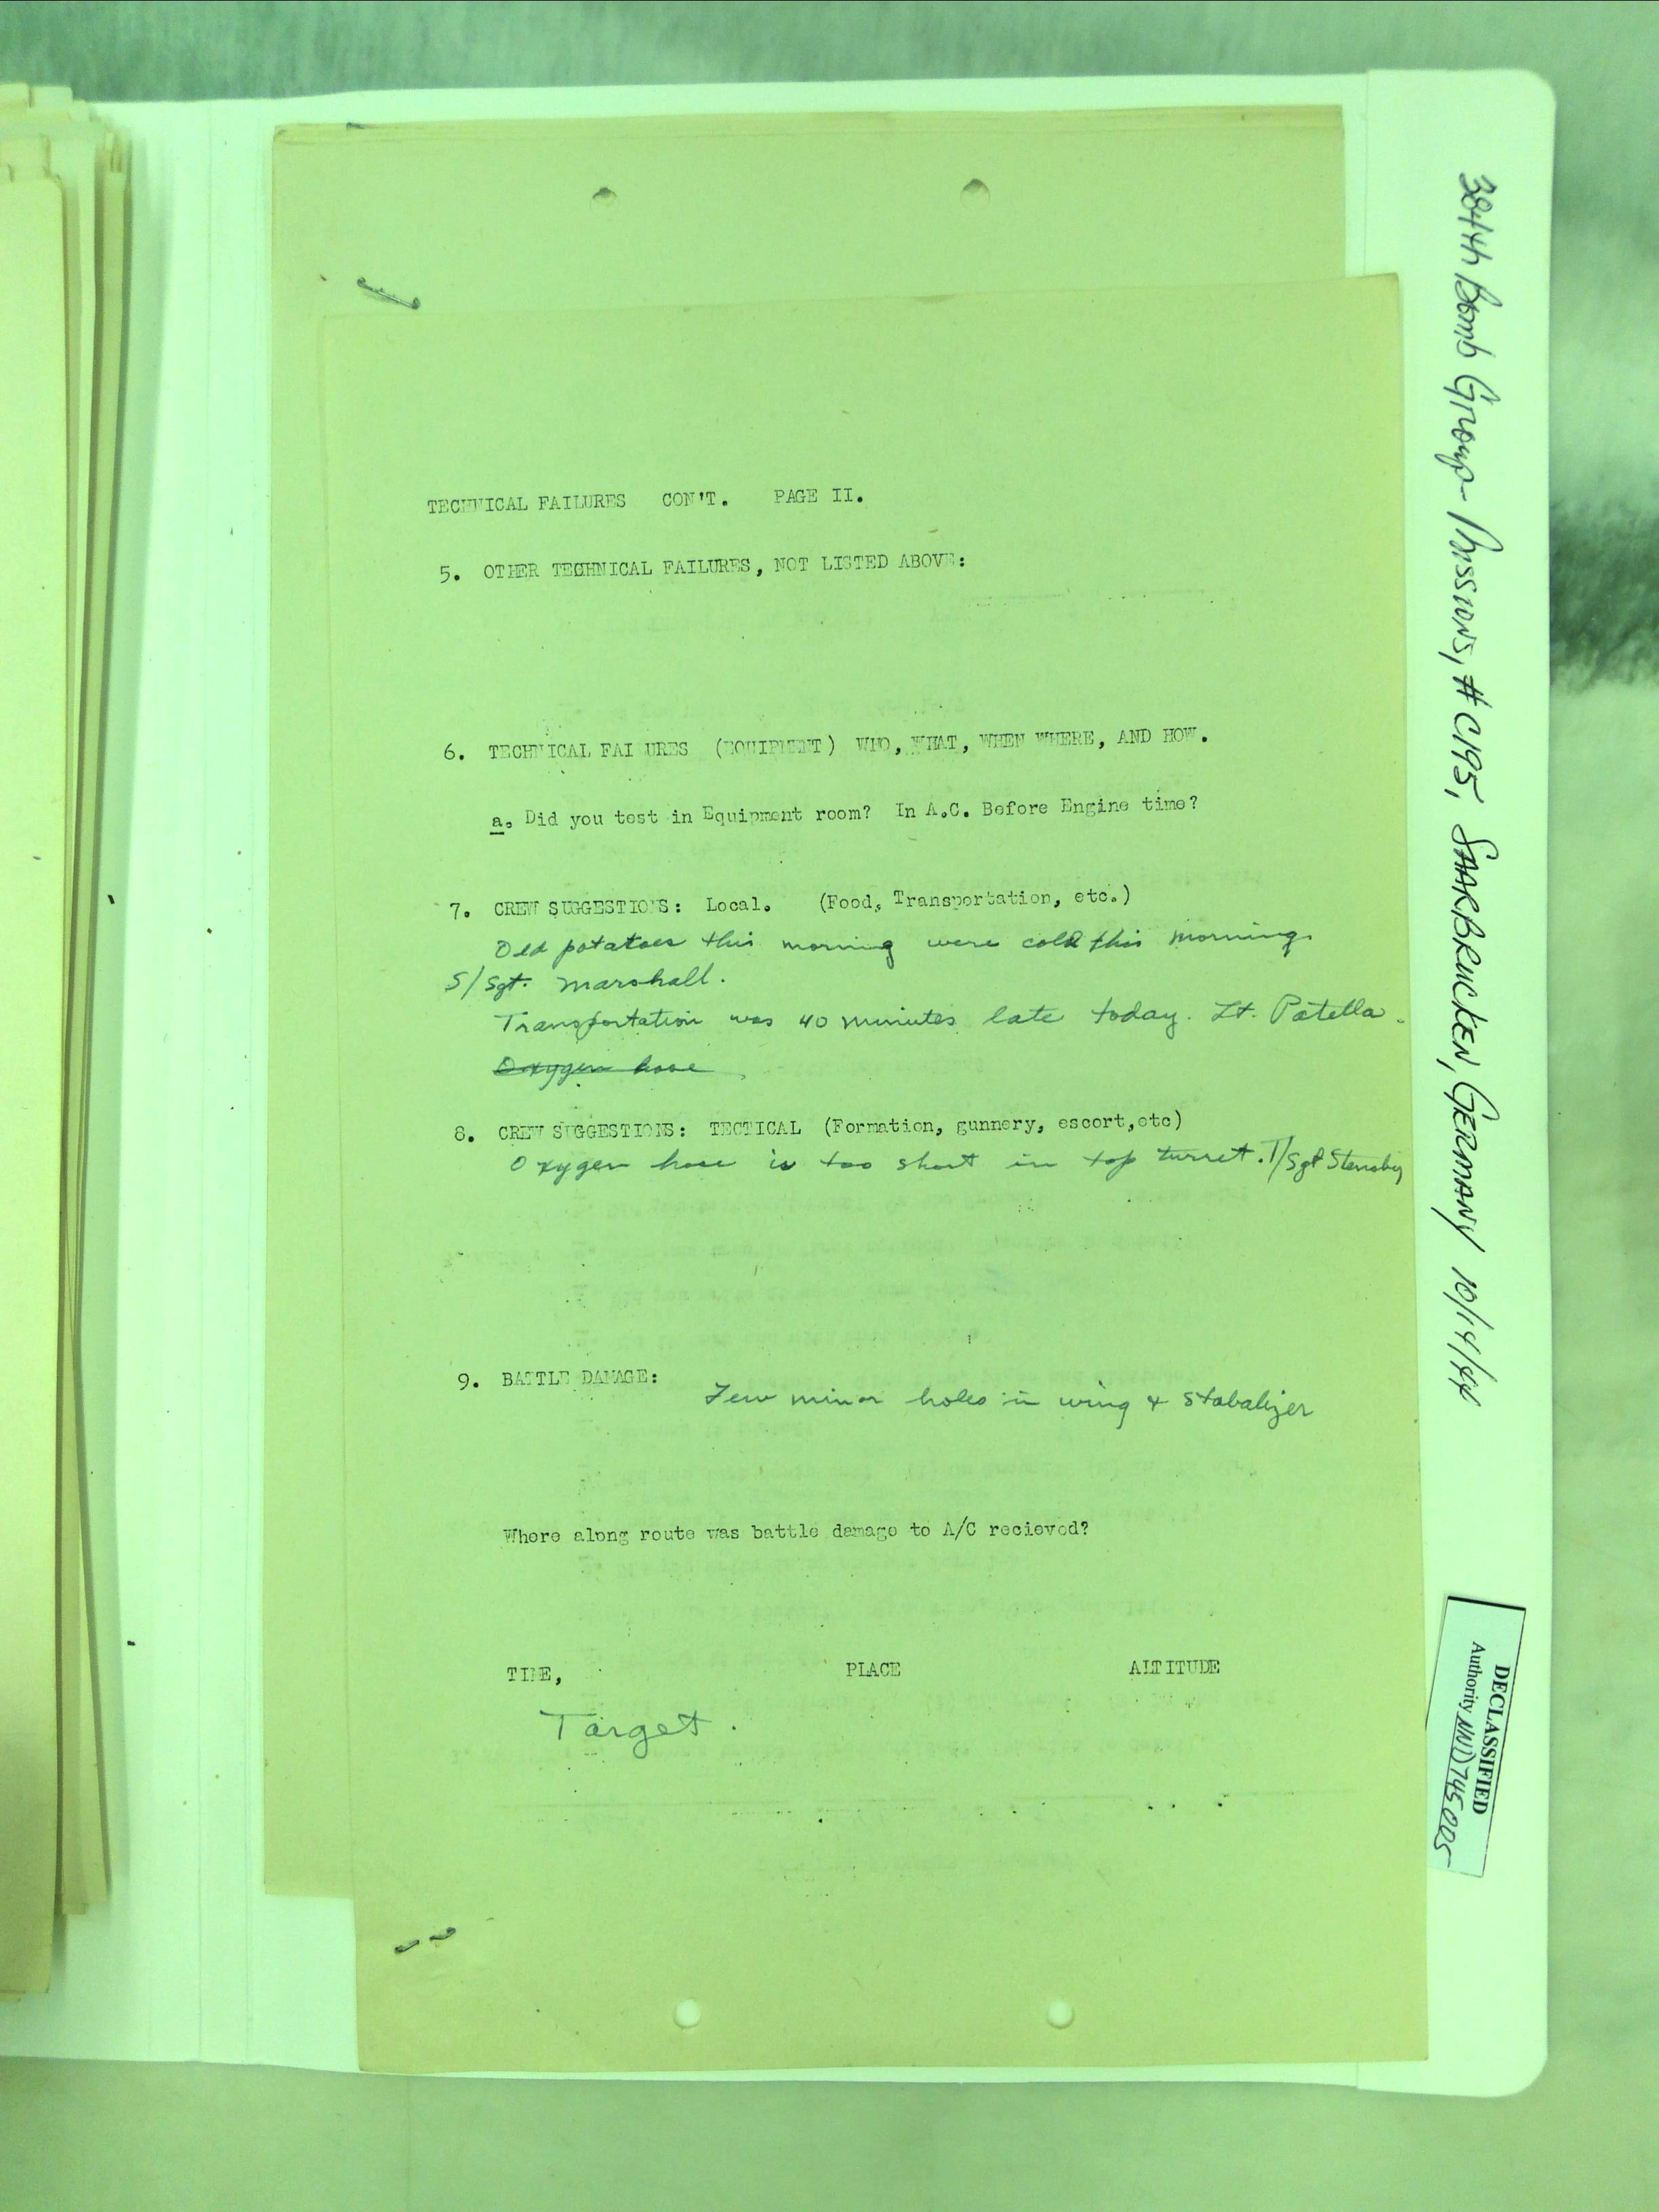 TECHNICAL FAILURES CON'T. PAGE II.
5. OTHER TECHNICAL FAILURES, NOT LISTED ABOVE:
6. TECHNICAL FAILURES (EQUIPMENT) WHO, WHAT, WHEN WHERE, AND HOW.
a. Did you test in Equipment room? In A.C. Before Engine time?
7. CREW SUGGESTIONS: Local. (Food, Transportation, etc.)
Old potatoes this morning were cold this morning.
S/Sgt. Marshall.
Transportation was 40 minutes late today. Lt. Patella.
Oxygen hose
8. CREW SUGGESTIONS: TECTICAL (Formation, gunnery, escort,etc)
Oxygen hose is too short in top turret. T/Sgt
9. BATTLE DAMAGE:
Few minor holes in wing & stabalizer
Where along route was battle damage to A/C recieved?
TIME, PLACE ALTITUDE
Target.
384th Bomb Group - Missions, #C195, SAARBRUCKEN, GERMANY 10/14/44
DECLASSIFIED
Authority NND745005